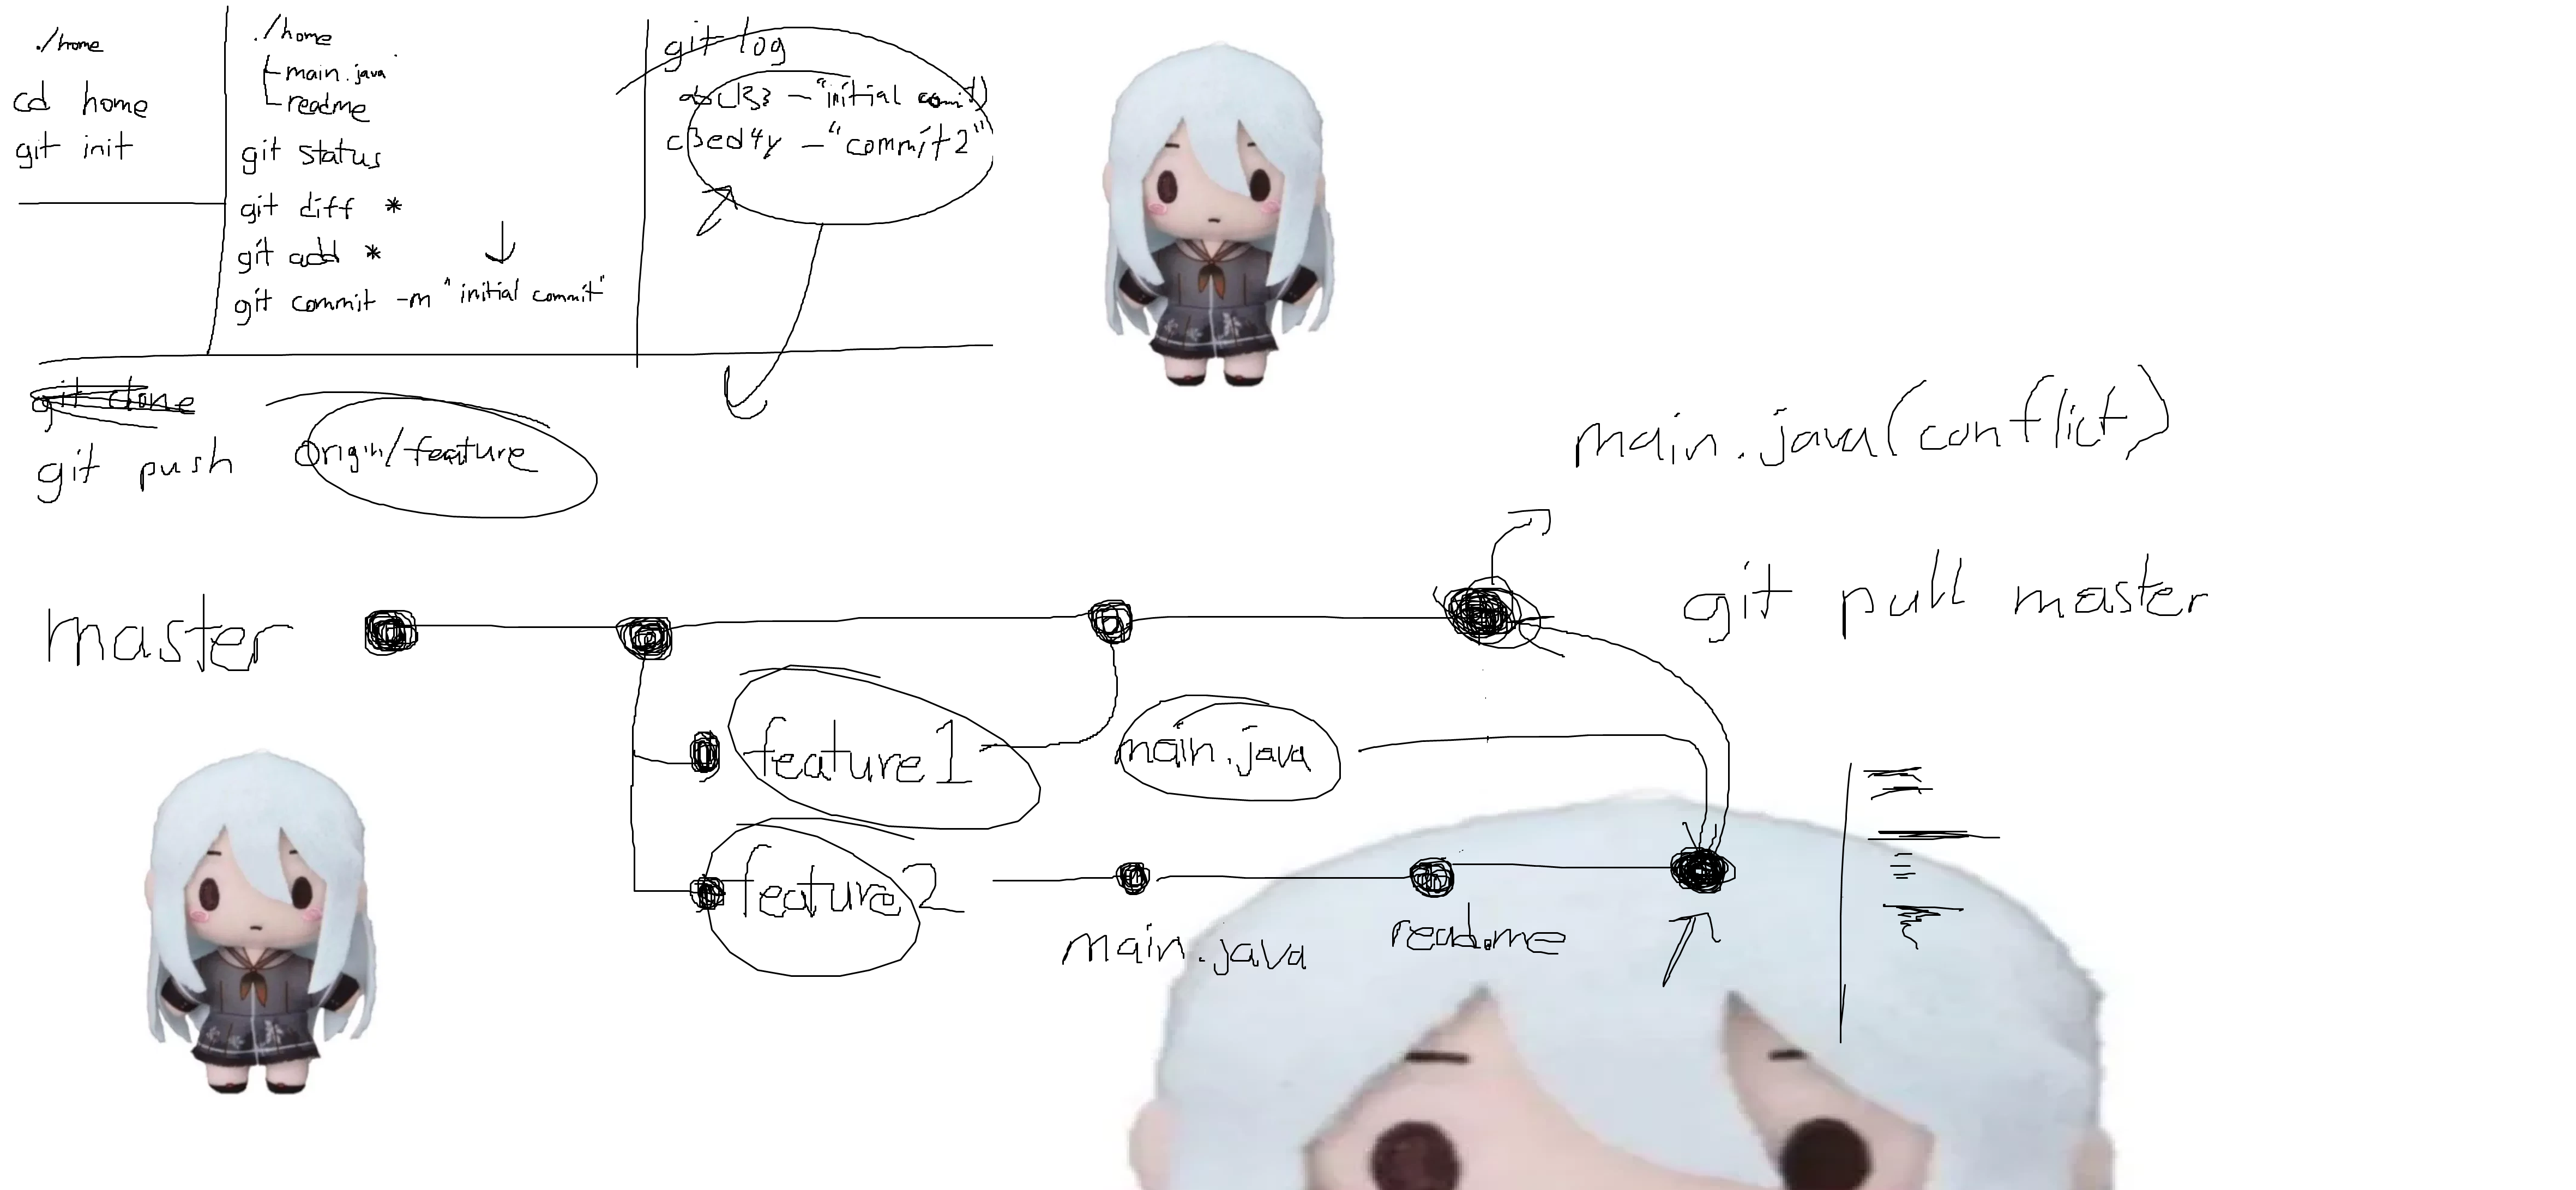 ./home
cd home
git init
./home
main.java
readme
git status
git diff *
git add *
git commit -m "initial commit"
git log
- "initial
c3ed4y - "commit2"
git clone
git push origin/feature
main.java(conflict)
git pull master
master
feature1
main.java
feature2
main.java
read.me